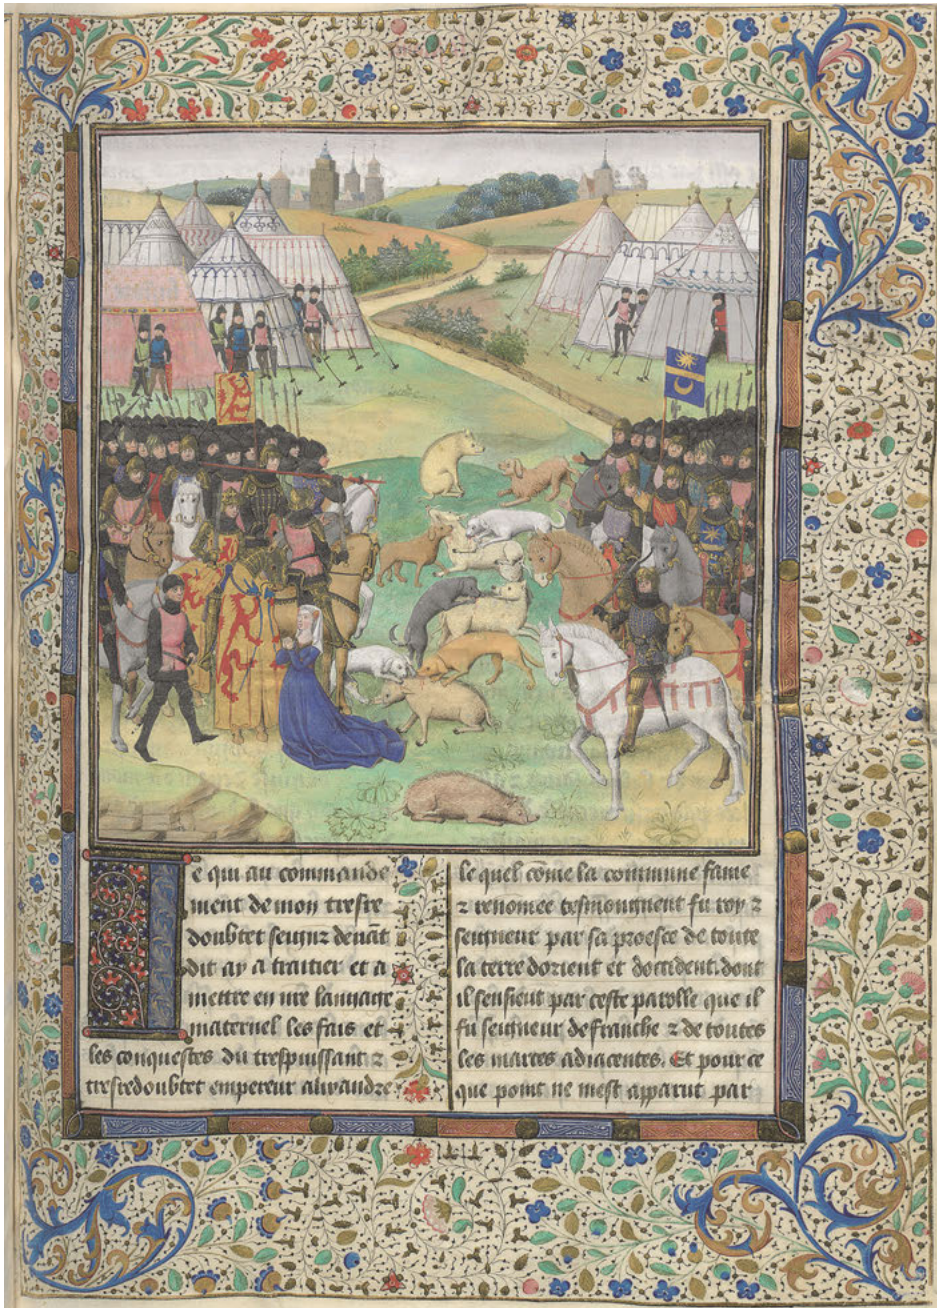 Ie qui au commande
ment de mon tresre
doubtet seignr deuāt
dit ay a traitier et a
mettre en nre langage
maternel les fais et
les conquestes du trespuissant ⁊
tresredoubtet empereur alixandre
le quel cōme la commune fame
⁊ renomee tesmoingnent fu roy ⁊
seigneur par sa proesce de toute
la terre dorient et doccident. dont
il sensieut par ceste parolle que il
fu seigneur de franche ⁊ de toutes
les marces adiacentes. Et pour ce
que point ne mest apparut par